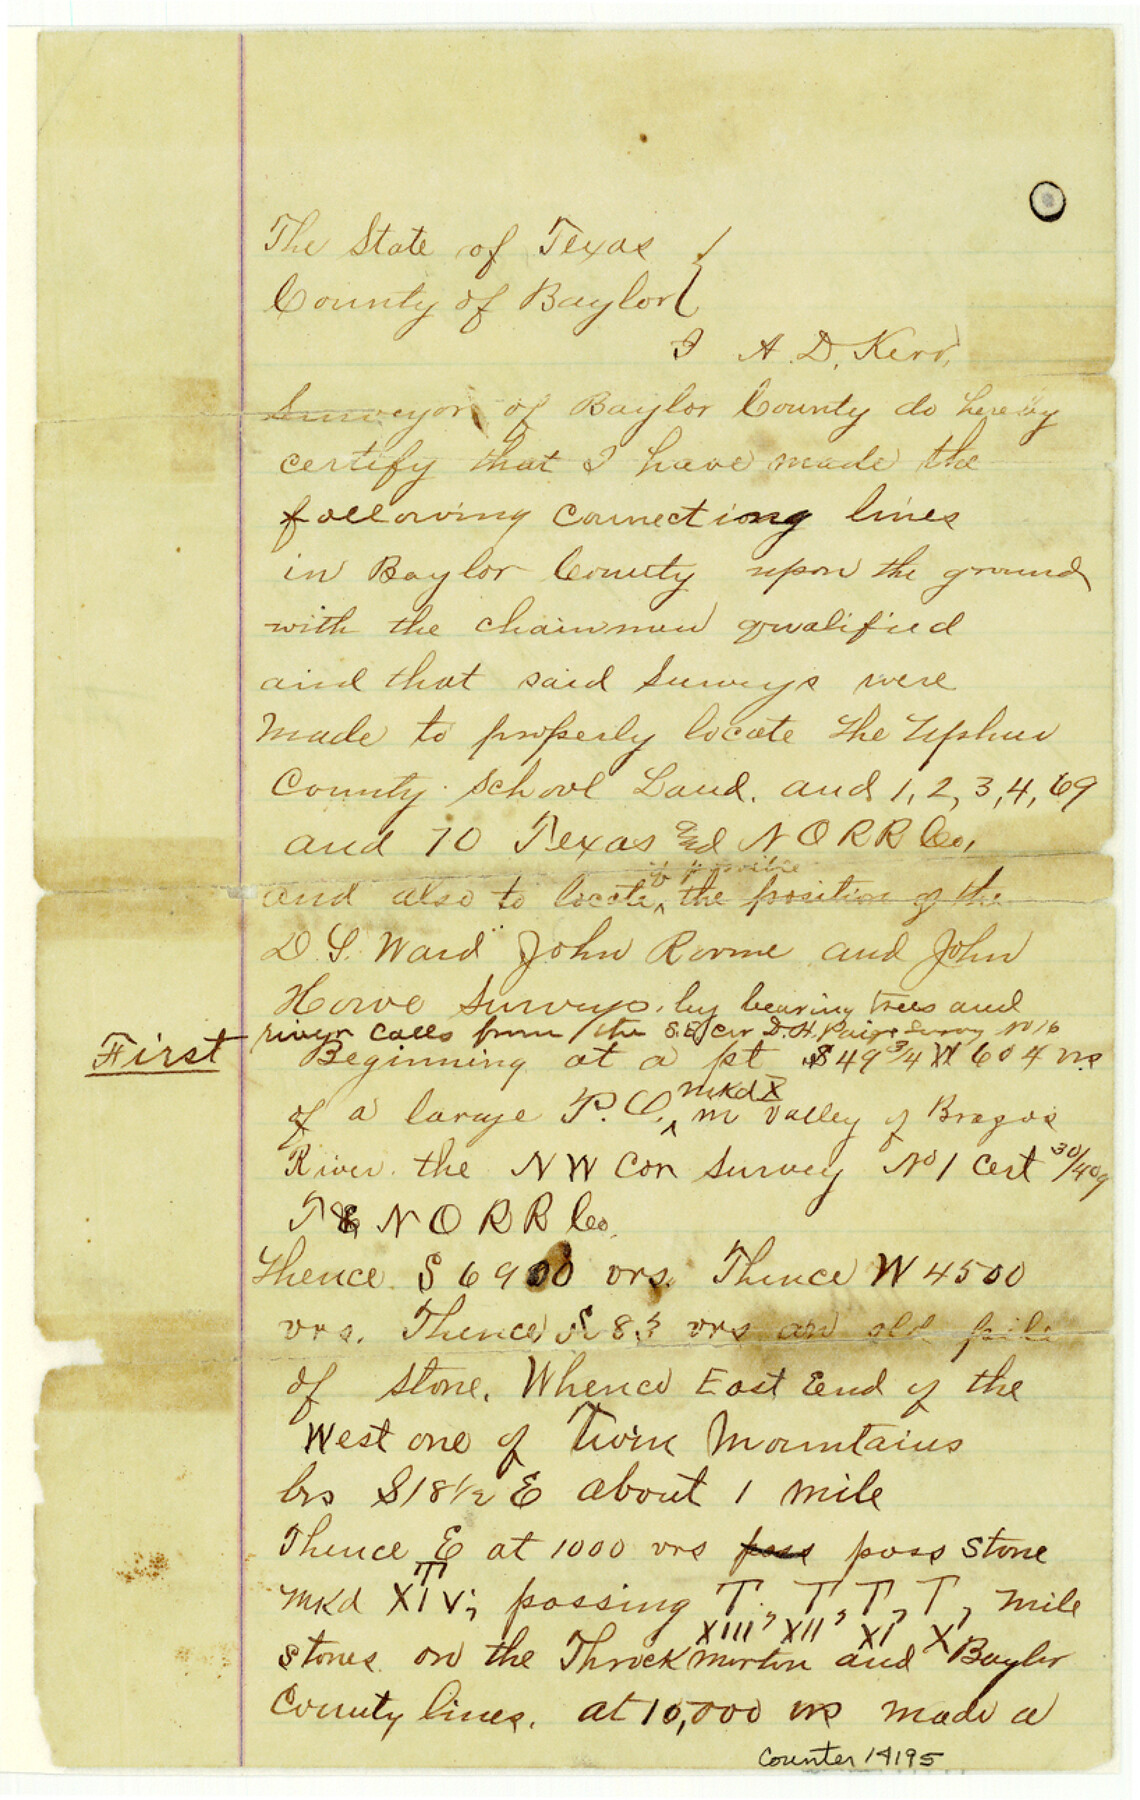 The State of Texas }
County of Baylor }
I A. D. Kerr,
Surveyor of Baylor County do hereby
certify that I have made the
following connecting lines
in Baylor County upon the ground
with the chainmen qualified
and that said surveys were
made to properly locate the Upshur
County School Land. and 1, 2, 3, 4, 69
and 70 Texas and N O R R Co,
if possible
and also to locate ^ the position of the
D. S. Ward John Rorme and John
Howe Surveys. by bearing trees and
river calls from the S.E. Cor D. H. Pairs Survey No 16
First Beginning at a pt S 49 3/4 W 604 vrs
mkd X
of a large P. O. ^ in valley of Brazos
River. the N W Cor Survey No 1 Cert 30/409
T & N O R R Co.
Thence S 6900 vrs. Thence W 4500
vrs. Thence S 85 vrs an old pile
of stone. Whence East End of the
West one of Twin Mountains
brs S 18 1/2 E about 1 mile
Thence E at 1000 vrs pass pass stone
mkd T XIV; passing T XIII, T XII, T XI, T X, mile
stones on the Throckmorton and Baylor
County lines. at 10,000 vrs made a
Counter 14195